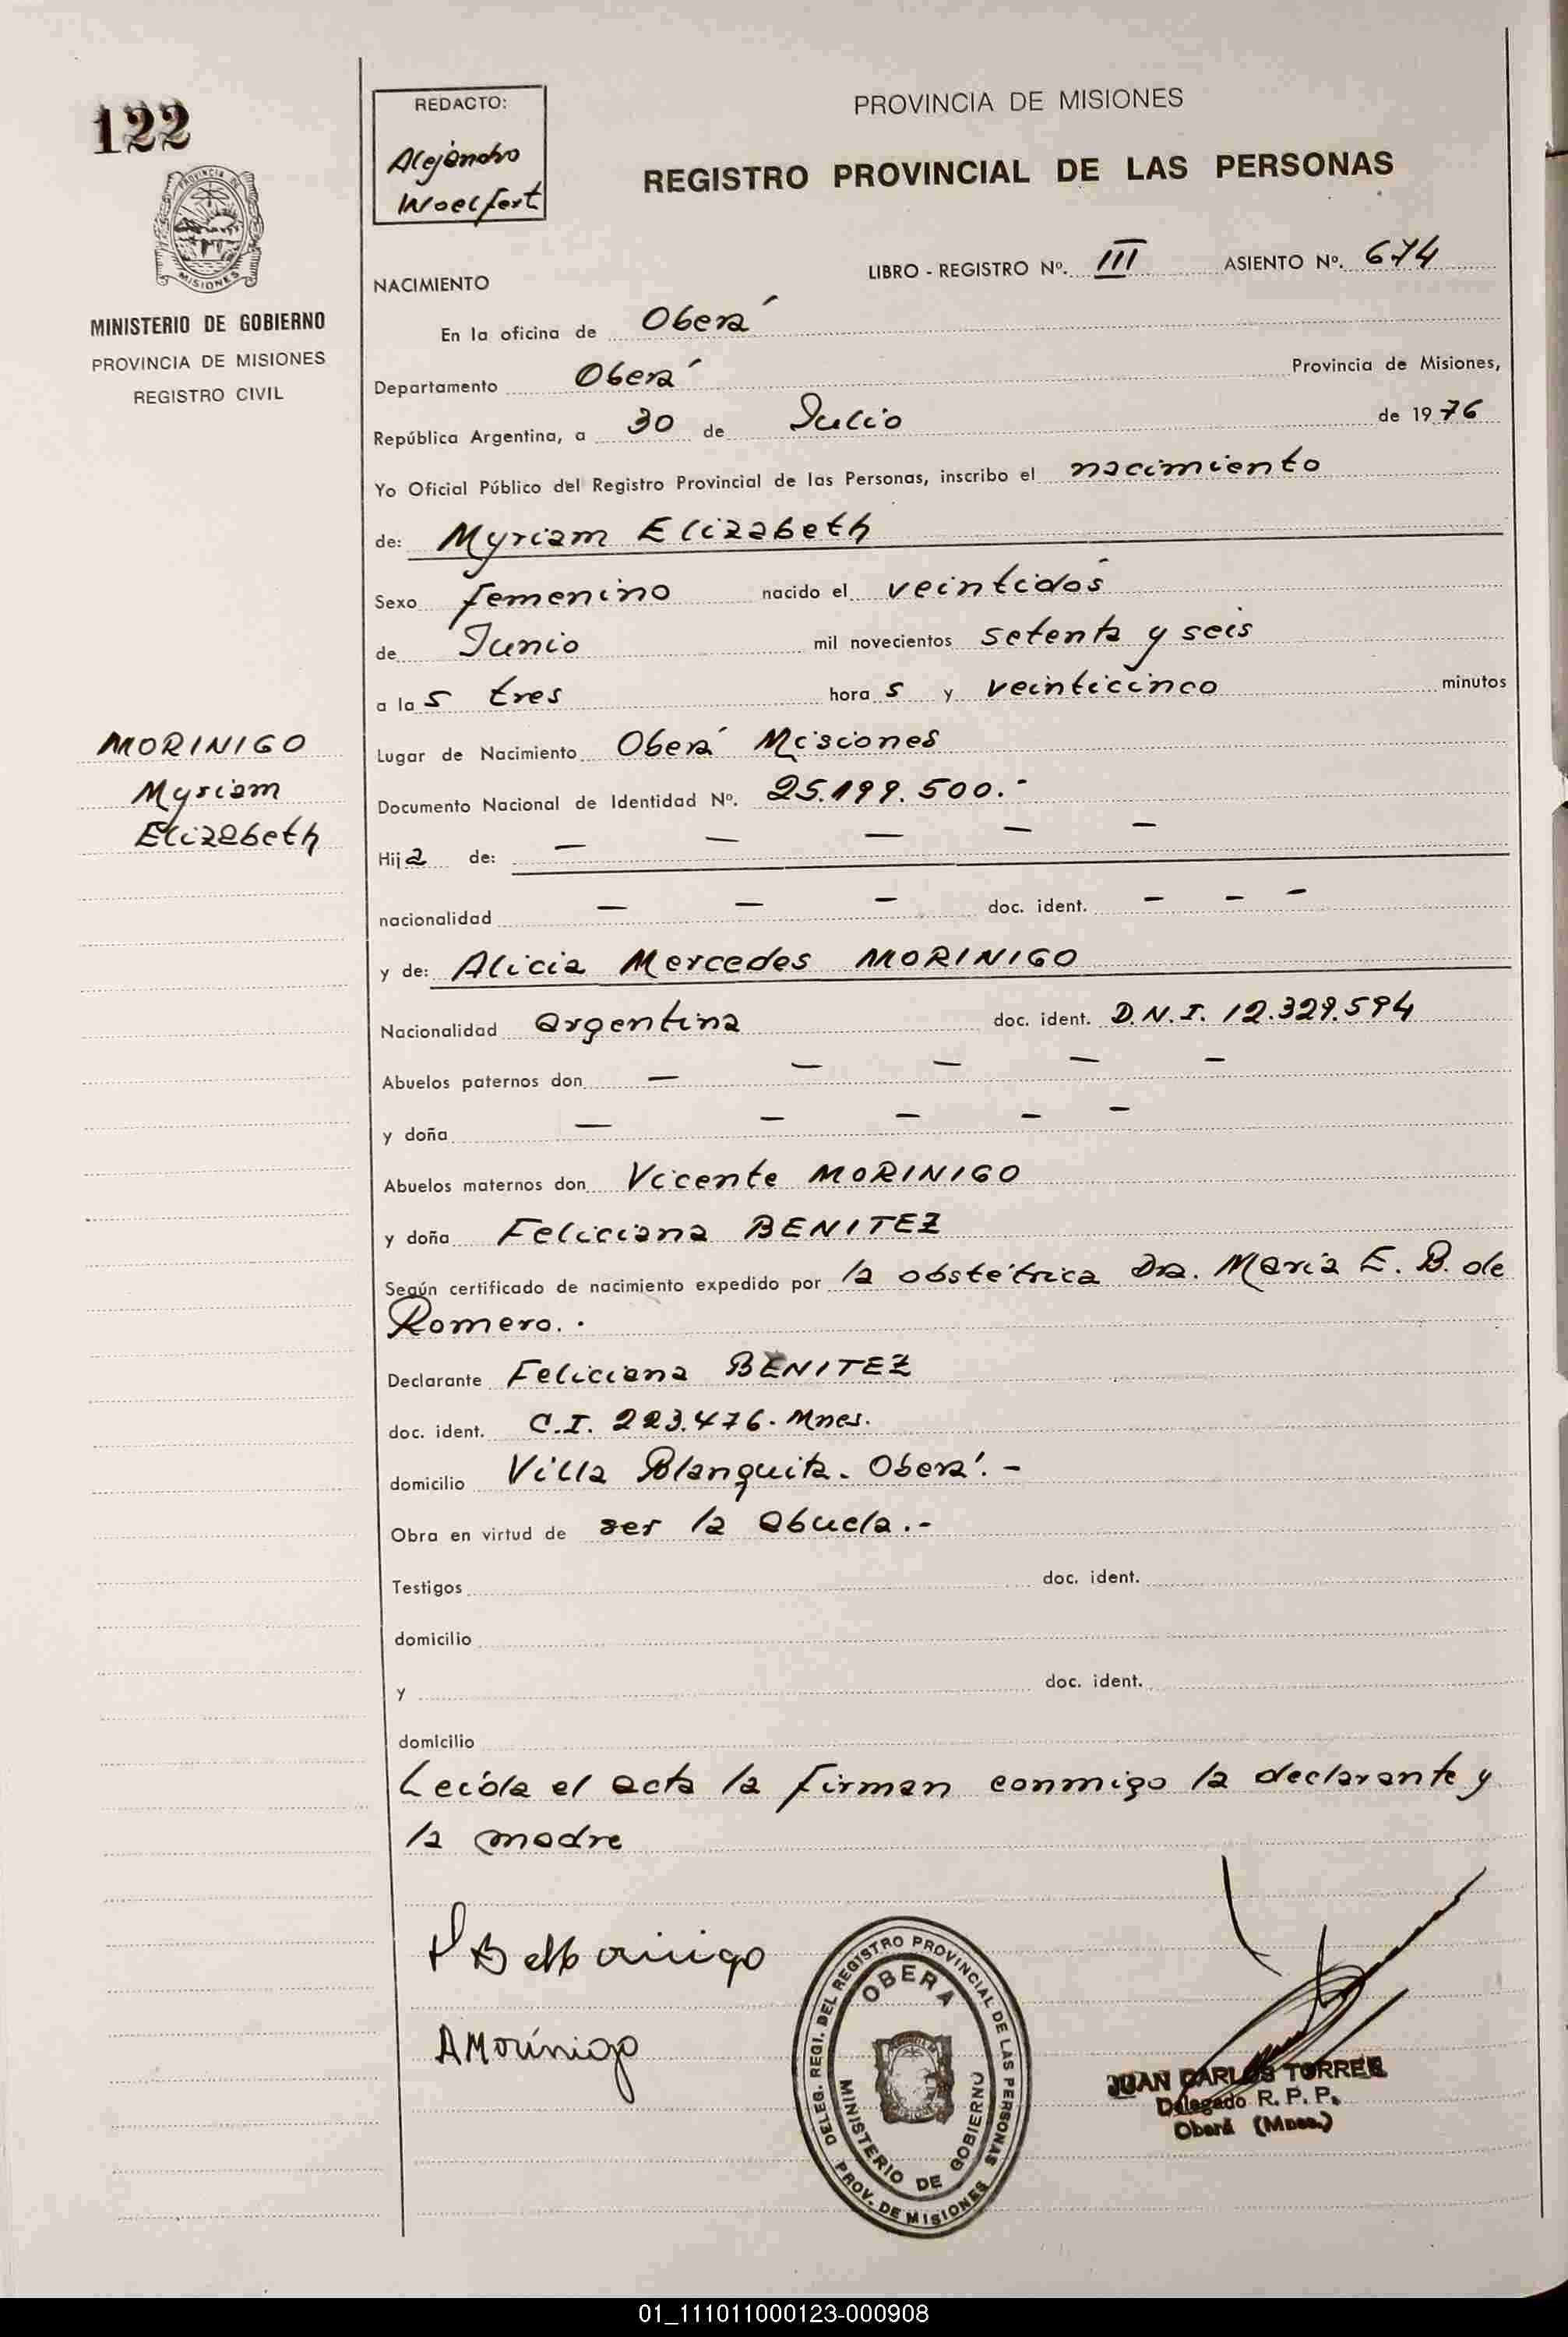 122
REDACTO:
Alejandro
Woelfert
PROVINCIA DE MISIONES
REGISTRO PROVINCIAL DE LAS PERSONAS
PROVINCIA DE
MISIONES
MINISTERIO DE GOBIERNO
PROVINCIA DE MISIONES
REGISTRO CIVIL
NACIMIENTO
LIBRO - REGISTRO Nº. III ASIENTO Nº. 674
En la oficina de Oberá
Departamento Oberá Provincia de Misiones,
República Argentina, a 30 de Julio de 1976
Yo Oficial Público del Registro Provincial de las Personas, inscribo el nacimiento
de: Myriam Elizabeth
Sexo femenino nacido el veintidós
de Junio mil novecientos setenta y seis
a las tres horas y veinticinco minutos
MORINIGO
Myriam
Elizabeth
Lugar de Nacimiento Oberá Misiones
Documento Nacional de Identidad Nº. 25.199.500.-
Hija de: — — — — —
nacionalidad — — — doc. ident. — — —
y de: Alicia Mercedes MORINIGO
Nacionalidad argentina doc. ident. D.N.I. 12.329.594
Abuelos paternos don — — — — —
y doña — — — — —
Abuelos maternos don Vicente MORINIGO
y doña Feliciana BENITEZ
Según certificado de nacimiento expedido por la obstétrica Dra. María E. B. de
Romero..
Declarante Feliciana BENITEZ
doc. ident. C.I. 223.476. Mnes.
domicilio Villa Blanquita. Oberá.-
Obra en virtud de ser la abuela.-
Testigos doc. ident.
domicilio
y doc. ident.
domicilio
Leída el acta la firman conmigo la declarante y
la madre
AMorínigo
DELEG. REGI. DEL REGISTRO PROVINCIAL DE LAS PERSONAS
OBERA
MINISTERIO DE GOBIERNO
PROV. DE MISIONES
JUAN CARLOS TORRES
Delegado R. P. P.
Oberá (Mnes.)
01_111011000123-000908